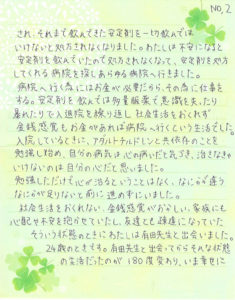 NO.2
され、それまで飲んできた安定剤を一切飲んでは
いけないと処方されなくなりました。わたしは不安になると
安定剤を飲んでいたので処方されなくなって、安定剤を処方
してくれる病院を探しあらゆる病院へ行きました。
病院へ行く為にはお金が必要だから、その為に仕事を
する。安定剤を飲んでは服薬で意識を失ったり
暴れたりで入退院を繰り返し、社会生活をおくれず
金銭感覚もお金があれば病院へ行くという生活でした。
入院しているときに、アダルトチルドレンと共依存のことを
勉強し始め、自分の病気は心の病いだと気づき、治さなきゃ
いけないのは自分の心だと思いました。
勉強しただけで心が治るということはなく、なにかが違う
なにかが足りないと前に進めずにいました。
社会生活をおくれない、金銭感覚がおかしい、家族にも
心配や不安を抱かせていたし、友達とも疎遠になっていた
そういう状態のときにわたしは有田先生と出会いました。
24歳のときです。有田先生と出会ってからそんな状態
の生活だったのが180度変わり、いま幸せに